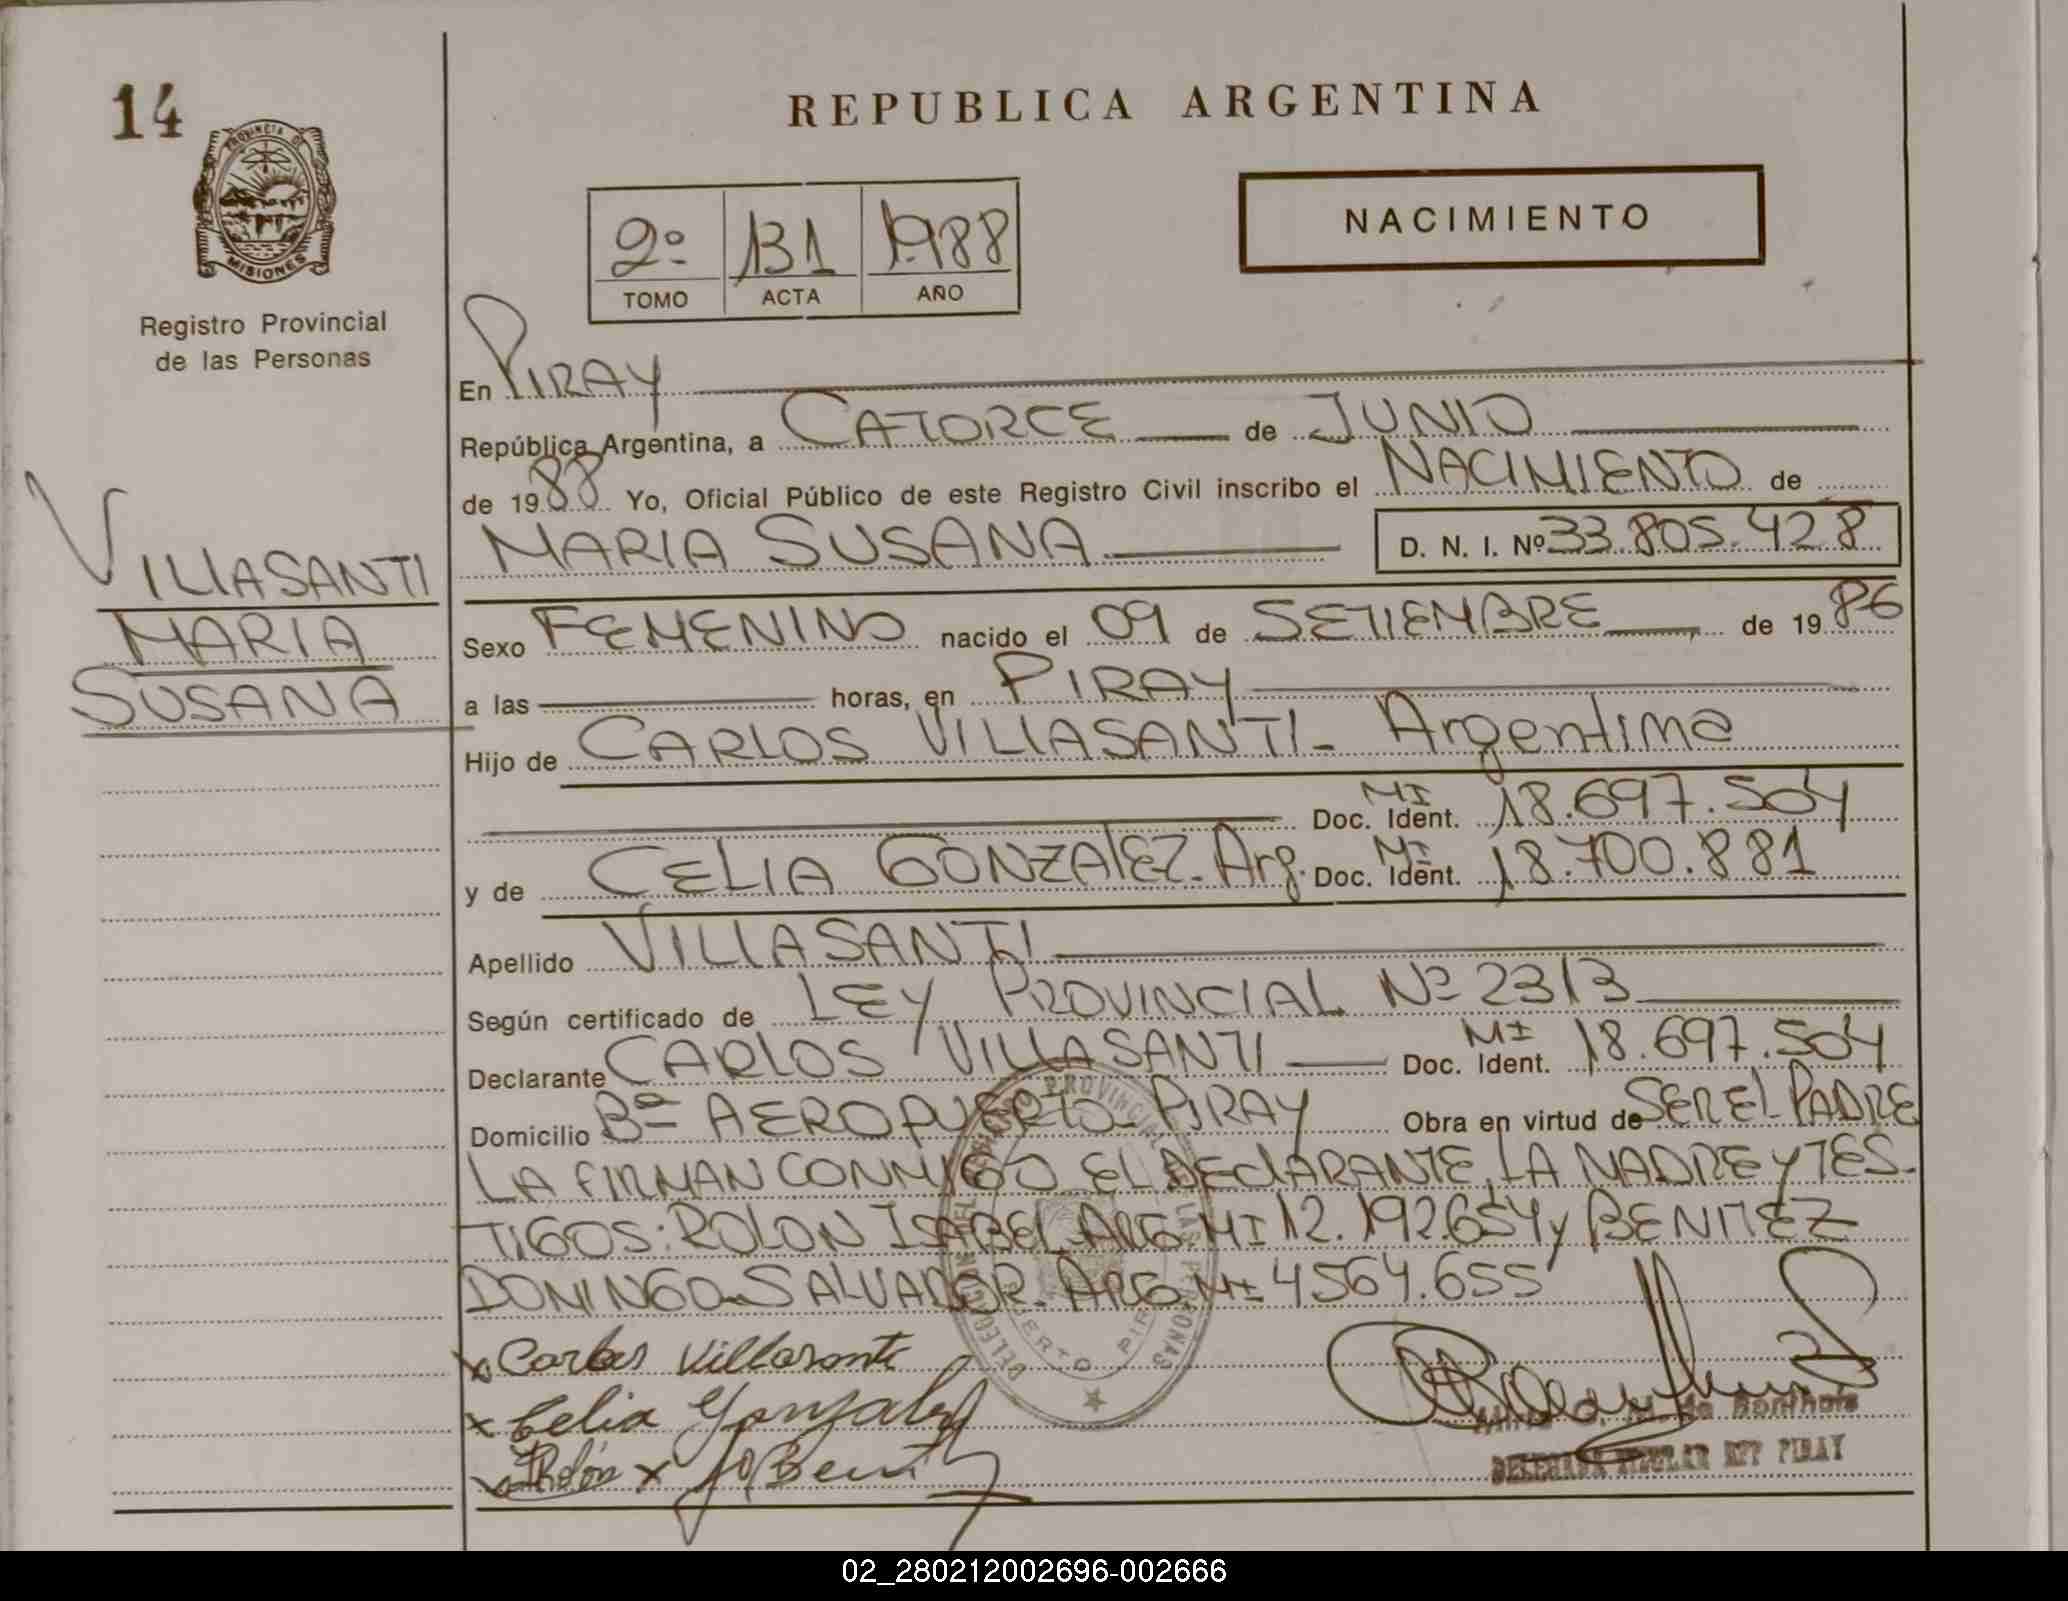 14
PROVINCIA DE
MISIONES
Registro Provincial
de las Personas
VILLASANTI
MARIA
SUSANA
REPUBLICA ARGENTINA
2º 131 1988
TOMO ACTA AÑO
NACIMIENTO
En PIRAY
República Argentina, a CATORCE de JUNIO
de 1988 Yo, Oficial Público de este Registro Civil inscribo el NACIMIENTO de
MARIA SUSANA D. N. I. Nº 33.805.428
Sexo FEMENINO nacido el 09 de SETIEMBRE de 1986
a las horas, en PIRAY
Hijo de CARLOS VILLASANTI - Argentina
Doc. Ident. MI 18.697.504
y de CELIA GONZALEZ - Arg. Doc. Ident. MI 18.700.881
Apellido VILLASANTI
Según certificado de LEY PROVINCIAL Nº 2313
Declarante CARLOS VILLASANTI Doc. Ident. MI 18.697.504
Domicilio Bº AEROPUERTO - PIRAY Obra en virtud de SER EL PADRE
LA FIRMAN CONMIGO EL DECLARANTE, LA MADRE Y TES-
TIGOS: ROLON ISABEL ARG. MI 12.192.654 y BENITEZ
DOMINGO SALVADOR - ARG. MI 4564.655
x Carlos Villasanti
x Celia Gonzalez
Rolón x
de Bonthais
DELEGADA TITULAR RPP PIRAY
02_280212002696-002666